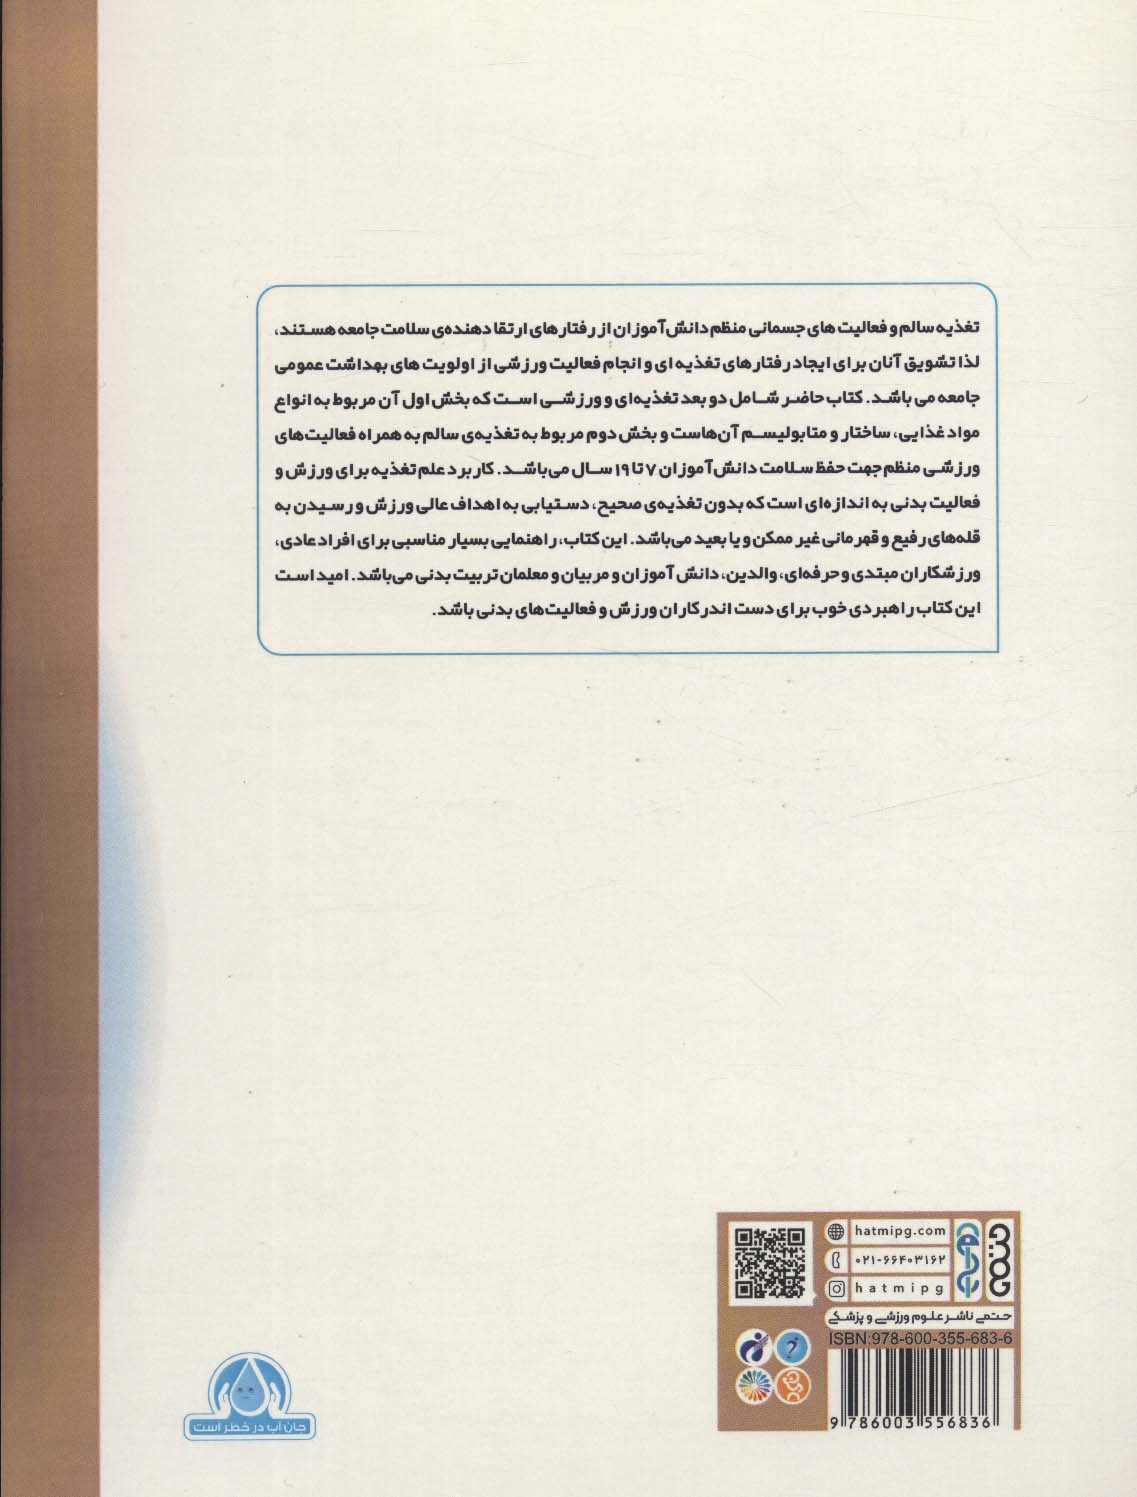 تغذیه سالم و فعالیت های جسمانی منظم دانش آموزان از رفتارهای ارتقا دهنده‌ی سلامت جامعه هستند،
لذا تشویق آنان برای ایجاد رفتارهای تغذیه ای و انجام فعالیت ورزشی از اولویت های بهداشت عمومی
جامعه می باشد. کتاب حاضر شامل دو بعد تغذیه‌ای و ورزشی است که بخش اول آن مربوط به انواع
مواد غذایی، ساختار و متابولیسم آن‌هاست و بخش دوم مربوط به تغذیه‌ی سالم به همراه فعالیت‌های
ورزشی منظم جهت حفظ سلامت دانش آموزان ۷ تا ۱۹ سال می‌باشد. کاربرد علم تغذیه برای ورزش و
فعالیت بدنی به اندازه‌ای است که بدون تغذیه‌ی صحیح، دستیابی به اهداف عالی ورزش و رسیدن به
قله‌های رفیع و قهرمانی غیر ممکن و یا بعید می‌باشد. این کتاب، راهنمایی بسیار مناسبی برای افراد عادی،
ورزشکاران مبتدی و حرفه‌ای، والدین، دانش آموزان و مربیان و معلمان تربیت بدنی می‌باشد. امید است
این کتاب راهبردی خوب برای دست اندرکاران ورزش و فعالیت‌های بدنی باشد.
حتمی
hatmipg.com
۰۲۱-۶۶۴۰۳۱۶۲
hatmipg
حتمی ناشر علوم ورزشی و پزشکی
ISBN:978-600-355-683-6
9 786003 556836
جان آب در خطر است